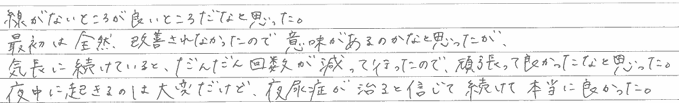 線がないところが良いところだなと思った。
最初は全然、改善されなかったので意味があるのかなと思ったが、
気長に続けていると、だんだん回数が減って行ったので、頑張って良かったなと思った。
夜中に起きるのは大変だけど、夜尿症が治ると信じて続けて本当に良かった。